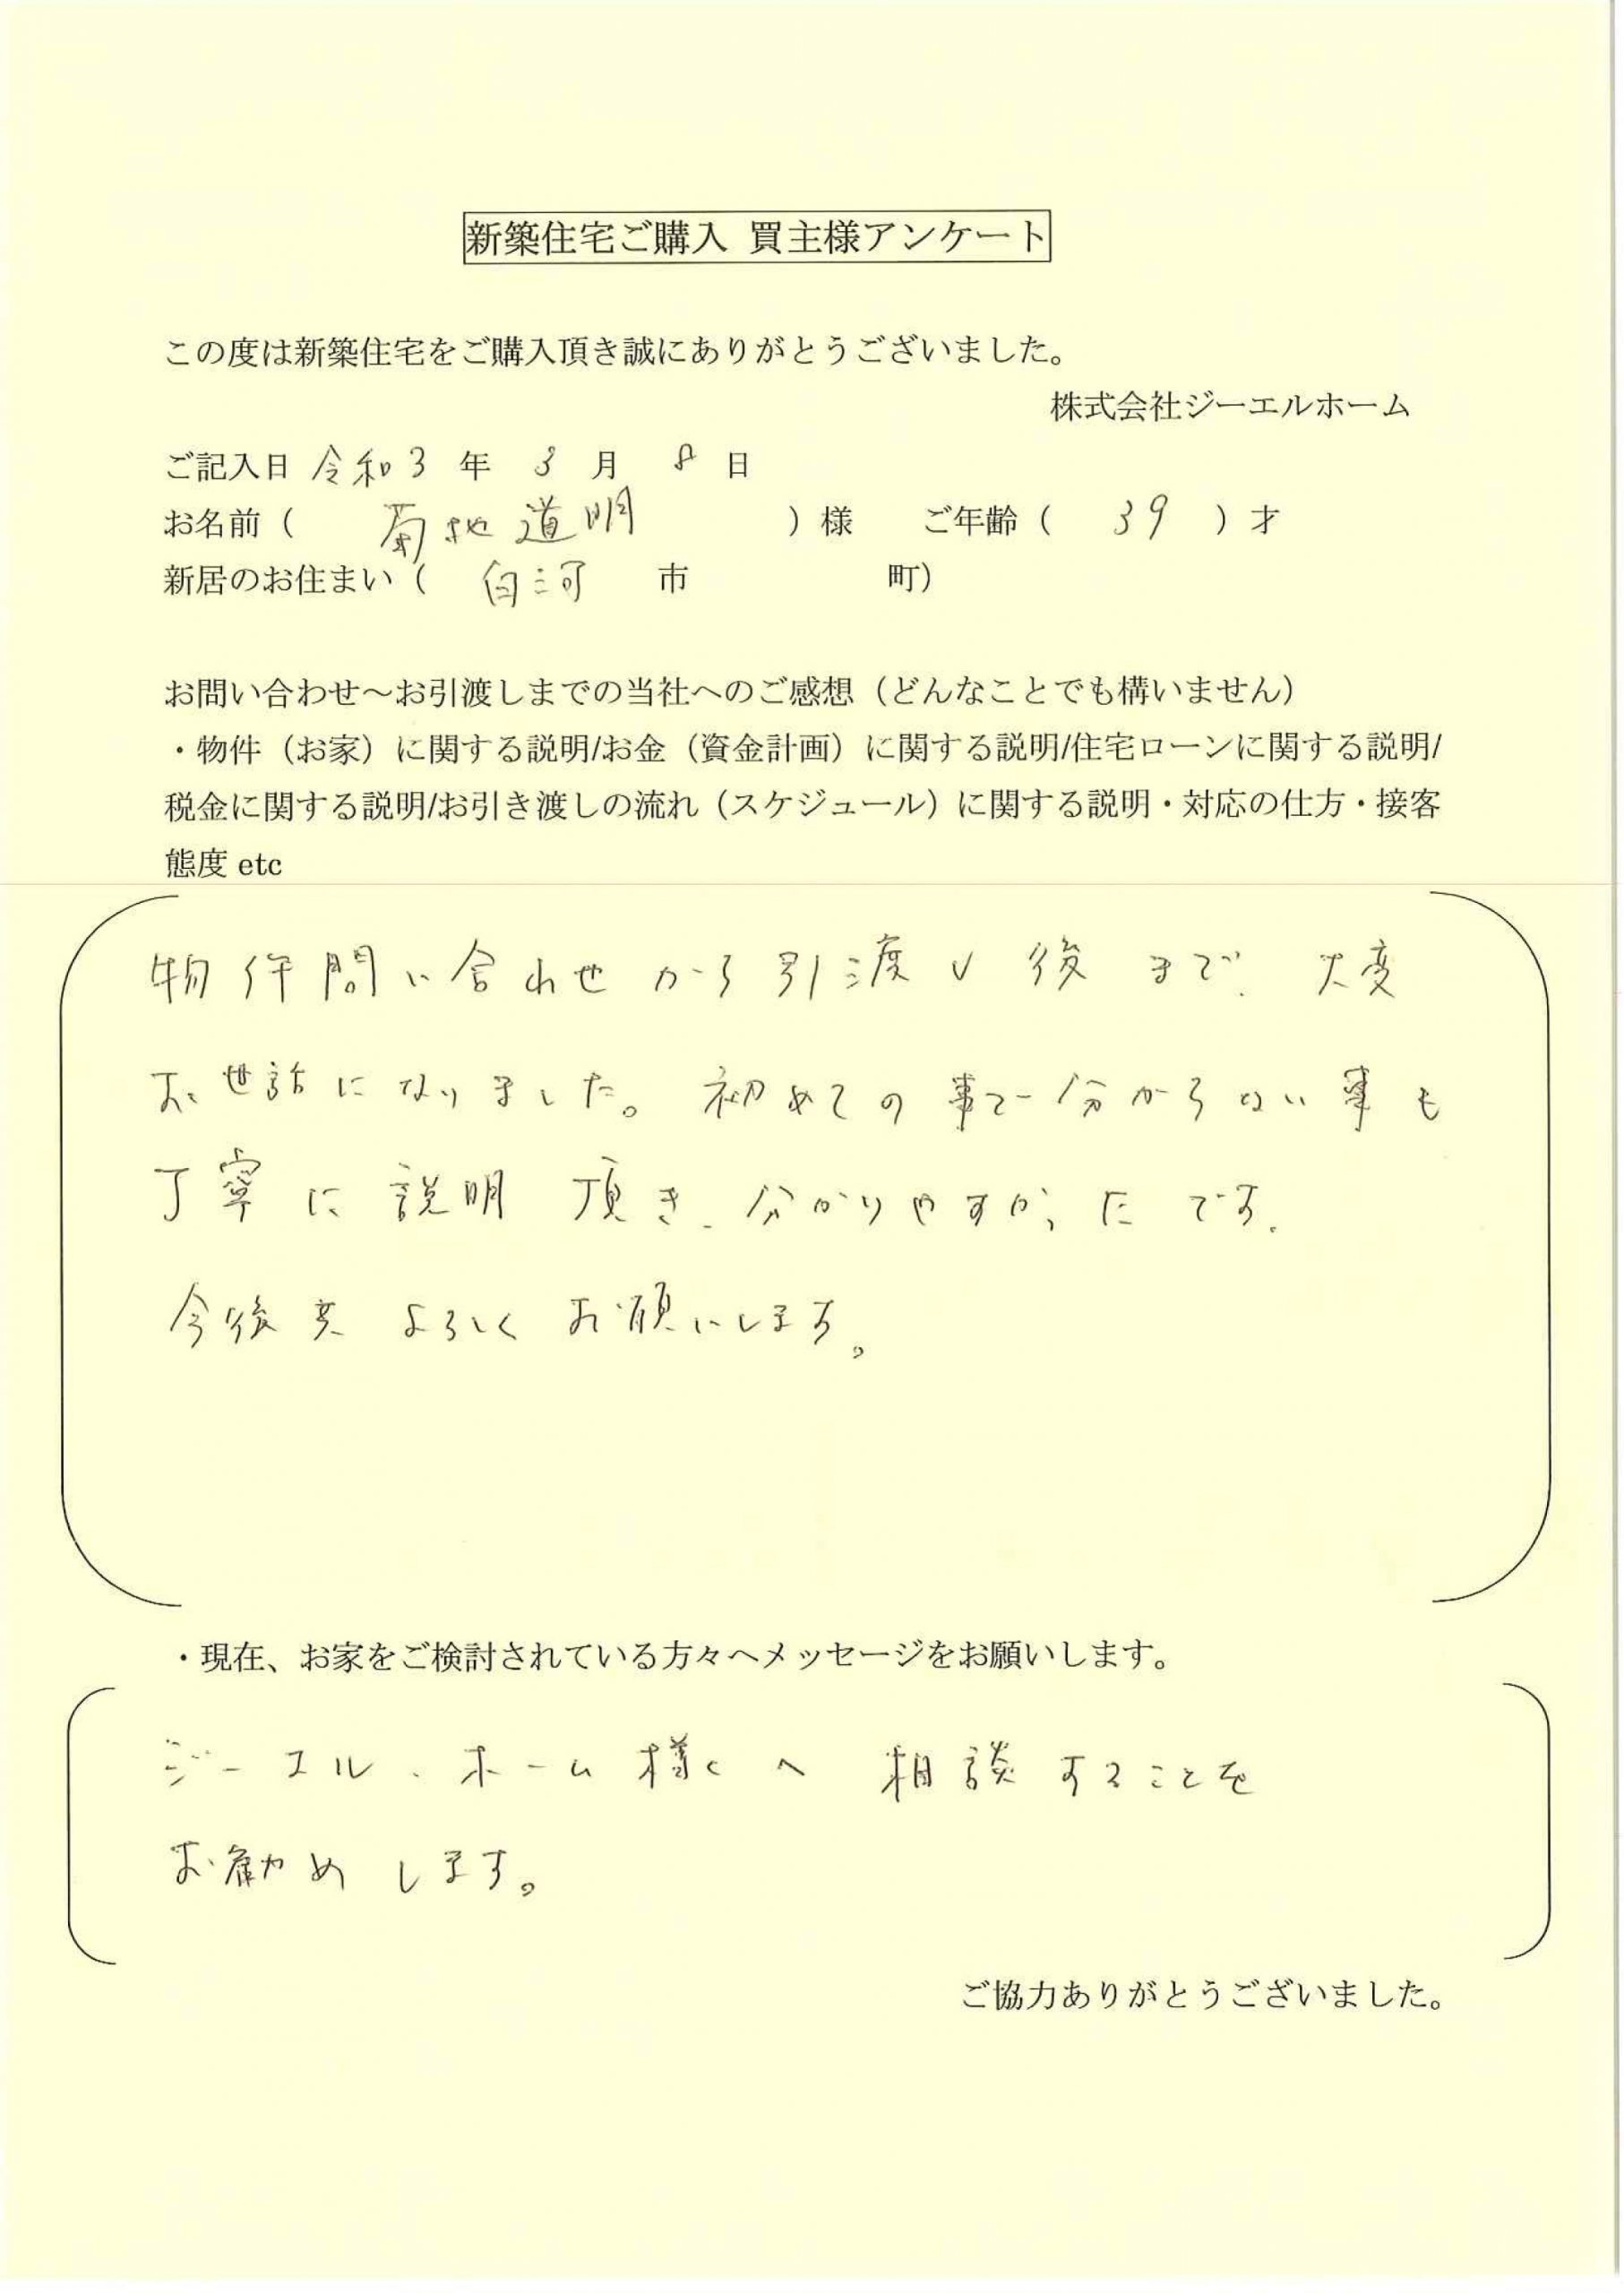 新築住宅ご購入 買主様アンケート
この度は新築住宅をご購入頂き誠にありがとうございました。
株式会社ジーエルホーム
ご記入日 令和3 年 3 月 8 日
お名前( 菊地道明 )様 ご年齢( 39 )才
新居のお住まい( 白河 市 町)
お問い合わせ～お引渡しまでの当社へのご感想(どんなことでも構いません)
・物件(お家)に関する説明/お金(資金計画)に関する説明/住宅ローンに関する説明/
税金に関する説明/お引き渡しの流れ(スケジュール)に関する説明・対応の仕方・接客
態度 etc
物件問い合わせから引渡し後まで、大変
お世話になりました。初めての事で分からない事も
丁寧に説明頂き、分かりやすかったです。
今後共よろしくお願いします。
・現在、お家をご検討されている方々へメッセージをお願いします。
ジーエル.ホーム様へ相談することを
お勧めします。
ご協力ありがとうございました。